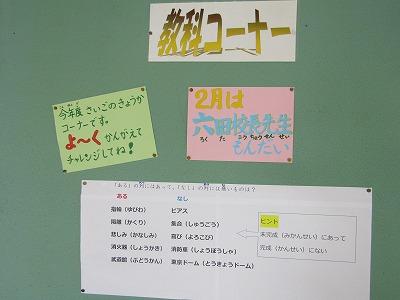 教科コーナー
今年度さいごのきょうか
コーナーです。
よ～くかんがえて
チャレンジしてね！
2月は
六田校長先生
ろくた こうちょうせんせい
もんだい
「ある」の列にはあって、「なし」の列には無いものは？
ある なし
指輪（ゆびわ） ピアス
隔離（かくり） 集合（しゅうごう）
悲しみ（かなしみ） 喜び（よろこび）
消火器（しょうかき） 消防車（しょうぼうしゃ）
武道館（ぶどうかん） 東京ドーム（とうきょうドーム）
ヒント
未完成（みかんせい）にあって
完成（かんせい）にない